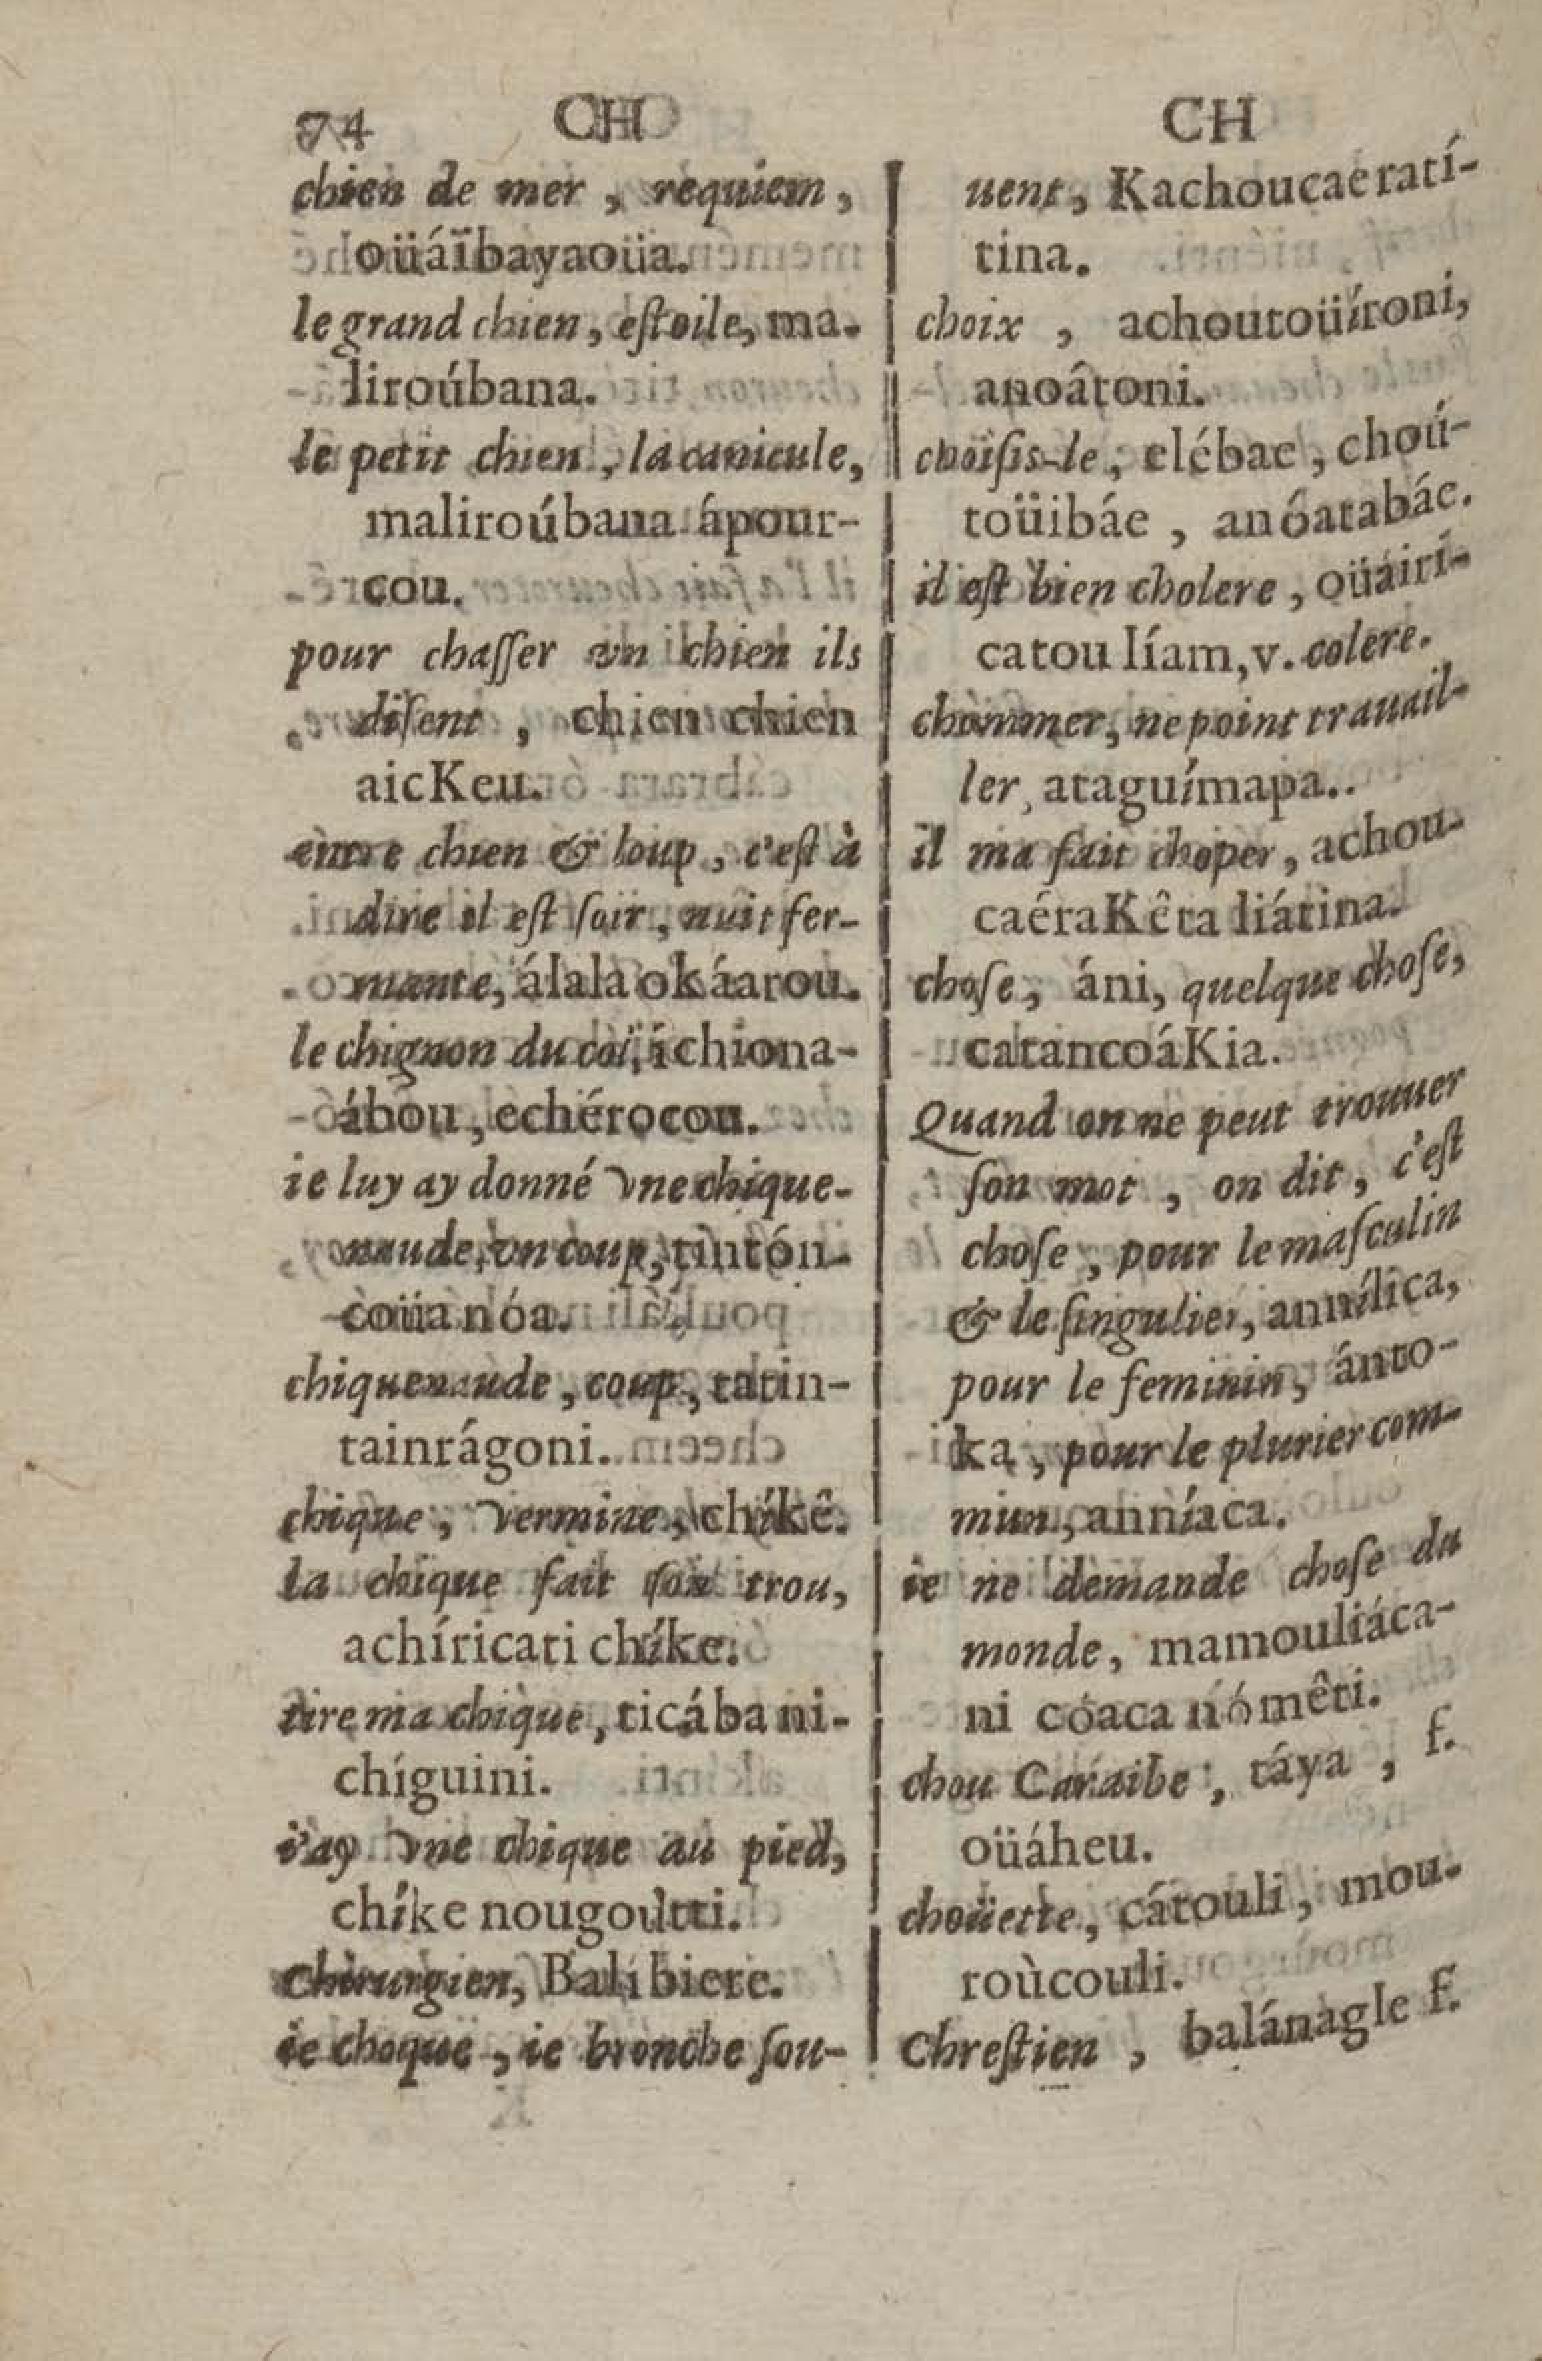 74 CH CH
chien de mer, requiem,
oüáïbayaoüa.
le grand chien, eſtoile, ma-
liroúbana.
le petit chien, la canicule,
maliroúbana ápour-
cou.
pour chaſſer vn chien ils
diſent, chien chien
aicKeu.
entre chien & loup, c'eſt à
dire il eſt ſoir, nuit fer-
mante, álala okáarou.
le chignon du col, íchiona-
ábou, echérocou.
ie luy ay donné vne chique-
naude, vn coup, tintón-
coüa nóa.
chiquenaude, coup, tatin-
tainrágoni.
chique, vermine, chíkê.
la chique fait ſon trou,
achíricati chíke.
tire ma chique, ticába ni-
chíguini.
i'ay vne chique au pied,
chíke nougoùtti.
Chirurgien, Balíbiere.
ie choque, ie bronche ſou-
uent, Kachoucaeratí-
tina.
choix, achoutoüíroni,
anoâtoni.
choiſis-le, elébae, choú-
toüibáe, anóatabáe.
il eſt bien cholere, oüáirí-
catou líam, v. colere.
chommer, ne point trauail-
ler, ataguímapa..
il ma fait choper, achou-
caéraKêta liátina.
choſe, áni, quelque choſe,
catancoáKia.
Quand on ne peut trouuer
ſon mot, on dit, c'eſt
choſe, pour le maſculin
& le ſingulier, annílica,
pour le feminin, ánto-
ka, pour le plurier com-
mun, anníaca.
ie ne demande choſe du
monde, mamouliáca-
ni cóaca nómêti.
chou Caraibe, táya, f.
oüáheu.
choüette, cátouli, mou-
roùcouli.
Chreſtien, balánagle f.